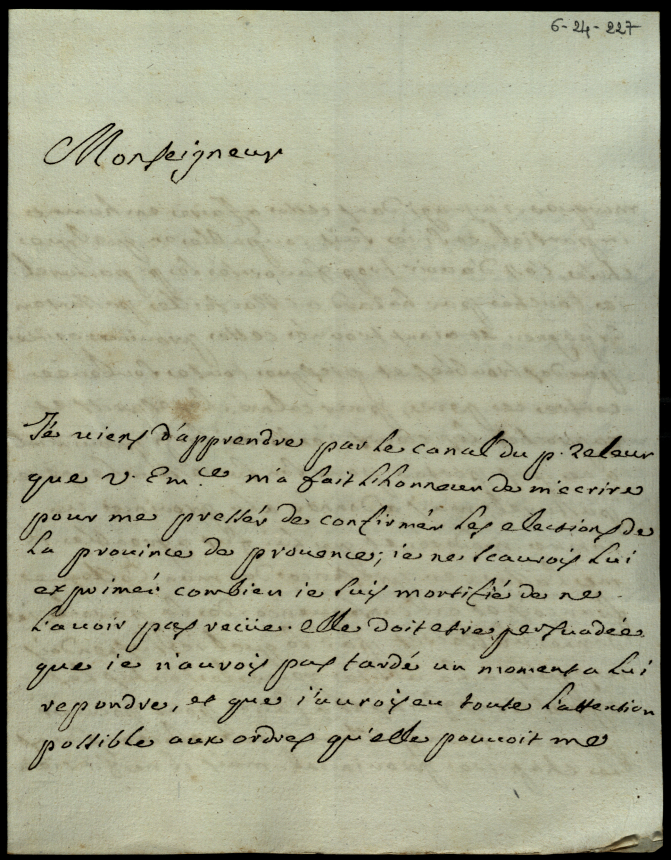 6-24-227
Monseigneur
Je viens d'apprendre par le canal du p. Zeleur
que v. Em.ce m'a fait l'honneur de m'ecrire
pour me presser de confirmer les elections de
la province de provence; ie ne scaurois lui
exprimer combien ie suis mortifié de ne
l'avoir pas reciie. elle doit etre persuadée
que ie n'aurois pas tardé un moment a lui
repondre, et que i'aurois eu toute l'attention
possible aux ordres qu'elle pouvoit me